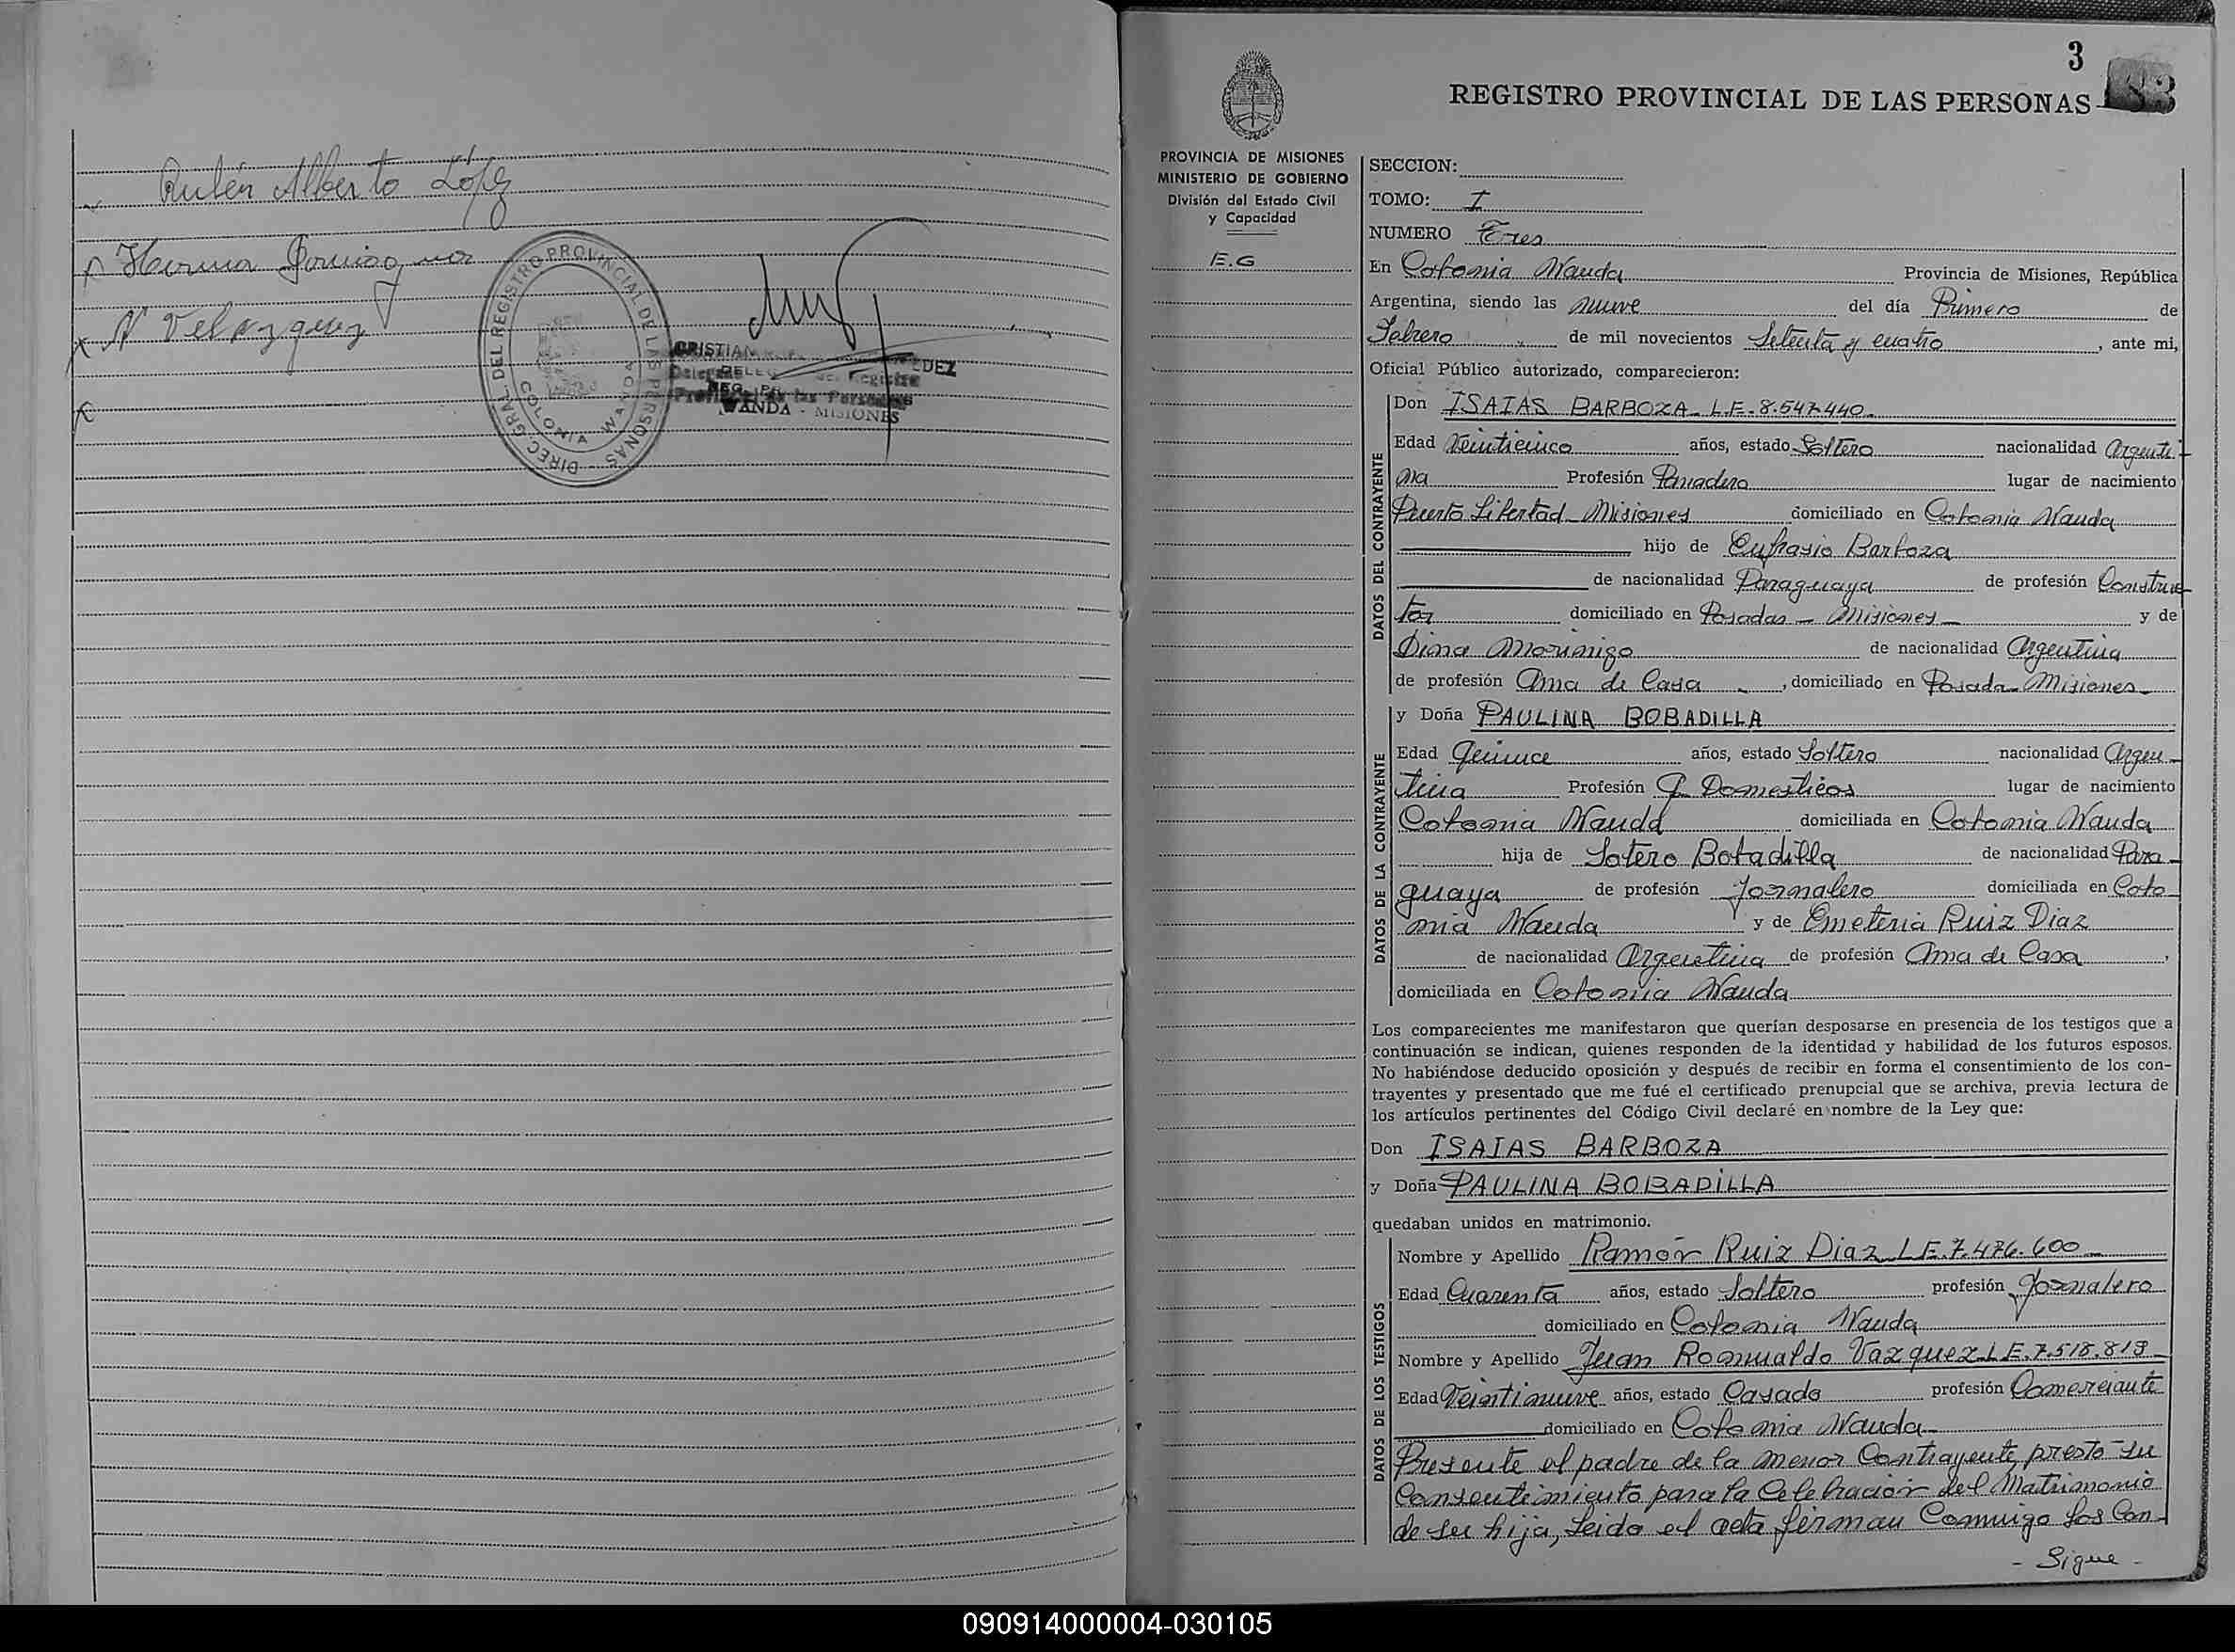 Rubén Alberto López
Velazquez
DIREC. GRAL. DEL REGISTRO PROVINCIAL DE LAS PERSONAS
COLONIA WANDA
CRISTIAN
WANDA - MISIONES
3
REGISTRO PROVINCIAL DE LAS PERSONAS
PROVINCIA DE MISIONES
MINISTERIO DE GOBIERNO
División del Estado Civil
y Capacidad
E.G
SECCION:
TOMO: I
NUMERO Tres
En Colonia Wanda Provincia de Misiones, República
Argentina, siendo las nueve del día Primero de
Febrero de mil novecientos Setenta y cuatro, ante mi,
Oficial Público autorizado, comparecieron:
DATOS DEL CONTRAYENTE
Don ISAIAS BARBOZA - L.E. 8.547.440
Edad Veinticinco años, estado Soltero nacionalidad Argenti-
na Profesión Panadero lugar de nacimiento
Puerto Libertad - Misiones domiciliado en Colonia Wanda
hijo de Eufrasio Barboza
de nacionalidad Paraguaya de profesión Construc-
tor domiciliado en Posadas - Misiones y de
Dina Morinigo de nacionalidad Argentina
de profesión Ama de Casa, domiciliado en Posada - Misiones
DATOS DE LA CONTRAYENTE
y Doña PAULINA BOBADILLA
Edad Quince años, estado Soltero nacionalidad Argen-
tina Profesión Q. Domesticos lugar de nacimiento
Colonia Wanda domiciliada en Colonia Wanda
hija de Sotero Bobadilla de nacionalidad Para-
guaya de profesión Jornalero domiciliada en Colo-
nia Wanda y de Emeteria Ruiz Diaz
de nacionalidad Argentina de profesión Ama de Casa,
domiciliada en Colonia Wanda
Los comparecientes me manifestaron que querían desposarse en presencia de los testigos que a
continuación se indican, quienes responden de la identidad y habilidad de los futuros esposos.
No habiéndose deducido oposición y después de recibir en forma el consentimiento de los con-
trayentes y presentado que me fué el certificado prenupcial que se archiva, previa lectura de
los artículos pertinentes del Código Civil declaré en nombre de la Ley que:
Don ISAIAS BARBOZA
y Doña PAULINA BOBADILLA
quedaban unidos en matrimonio.
DATOS DE LOS TESTIGOS
Nombre y Apellido Ramón Ruiz Diaz L.E. 7.476.600
Edad Cuarenta años, estado Soltero profesión Jornalero
domiciliado en Colonia Wanda
Nombre y Apellido Juan Romualdo Vazquez L.E. 7.518.819
Edad Veintinueve años, estado Casado profesión Comerciante
domiciliado en Colonia Wanda
Presente el padre de la menor Contrayente, presto su
Consentimiento para la Celebración del Matrimonio
de su hija, Leido el acta firman Conmigo los Con-
- Sigue -
090914000004-030105